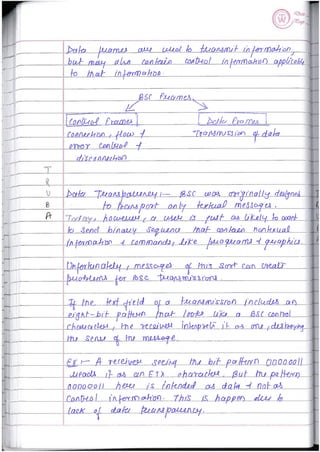 Data frames are used to transmit information,
but may also contain control information applicable
to that information.
BSC Frames
Control Frames
Data Frames
Connection, flow &
Transmission of data
error control &
disconnection
T
R
U
B
A
Data Transparency :- BSC was originally designed
to transport only textual messages.
Today, however, a user is just as likely to want
to send binary sequence that contain nontextual
information & commands, like programs & graphics.
Unfortunately, messages of this sort can create
problems for BSC transmissions.
If the text field of a transmission includes an
eight-bit pattern that looks like a BSC control
character, the receiver interprets it as one, destroying
the sense of the message.
EX :- A receiver seeing the bit pattern 0000011
reads it as an ETX character. But the pattern
0000011 here is intended as data & not as
control information. This is happen due to
lack of data transparency.